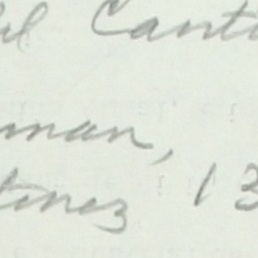 il Canti
man,
tinez, 13